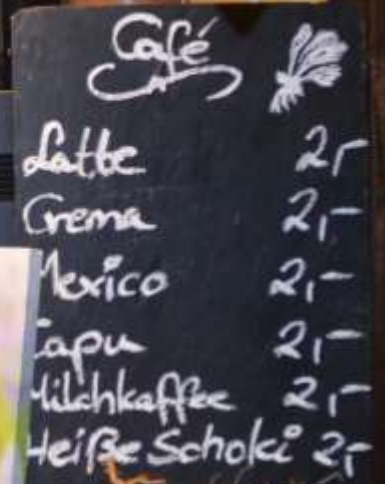 Café
Latte 2,-
Crema 2,-
Mexico 2,-
Capu 2,-
Milchkaffee 2,-
Heiße Schoki 2,-